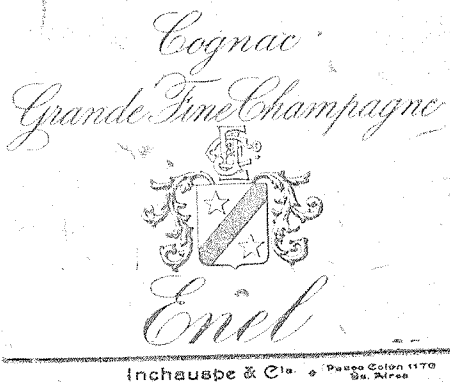 Cognac
Grande Fine Champagne
Enel
Inchauspe & Cia.
Paseo Colon 1170
Bs. Aires